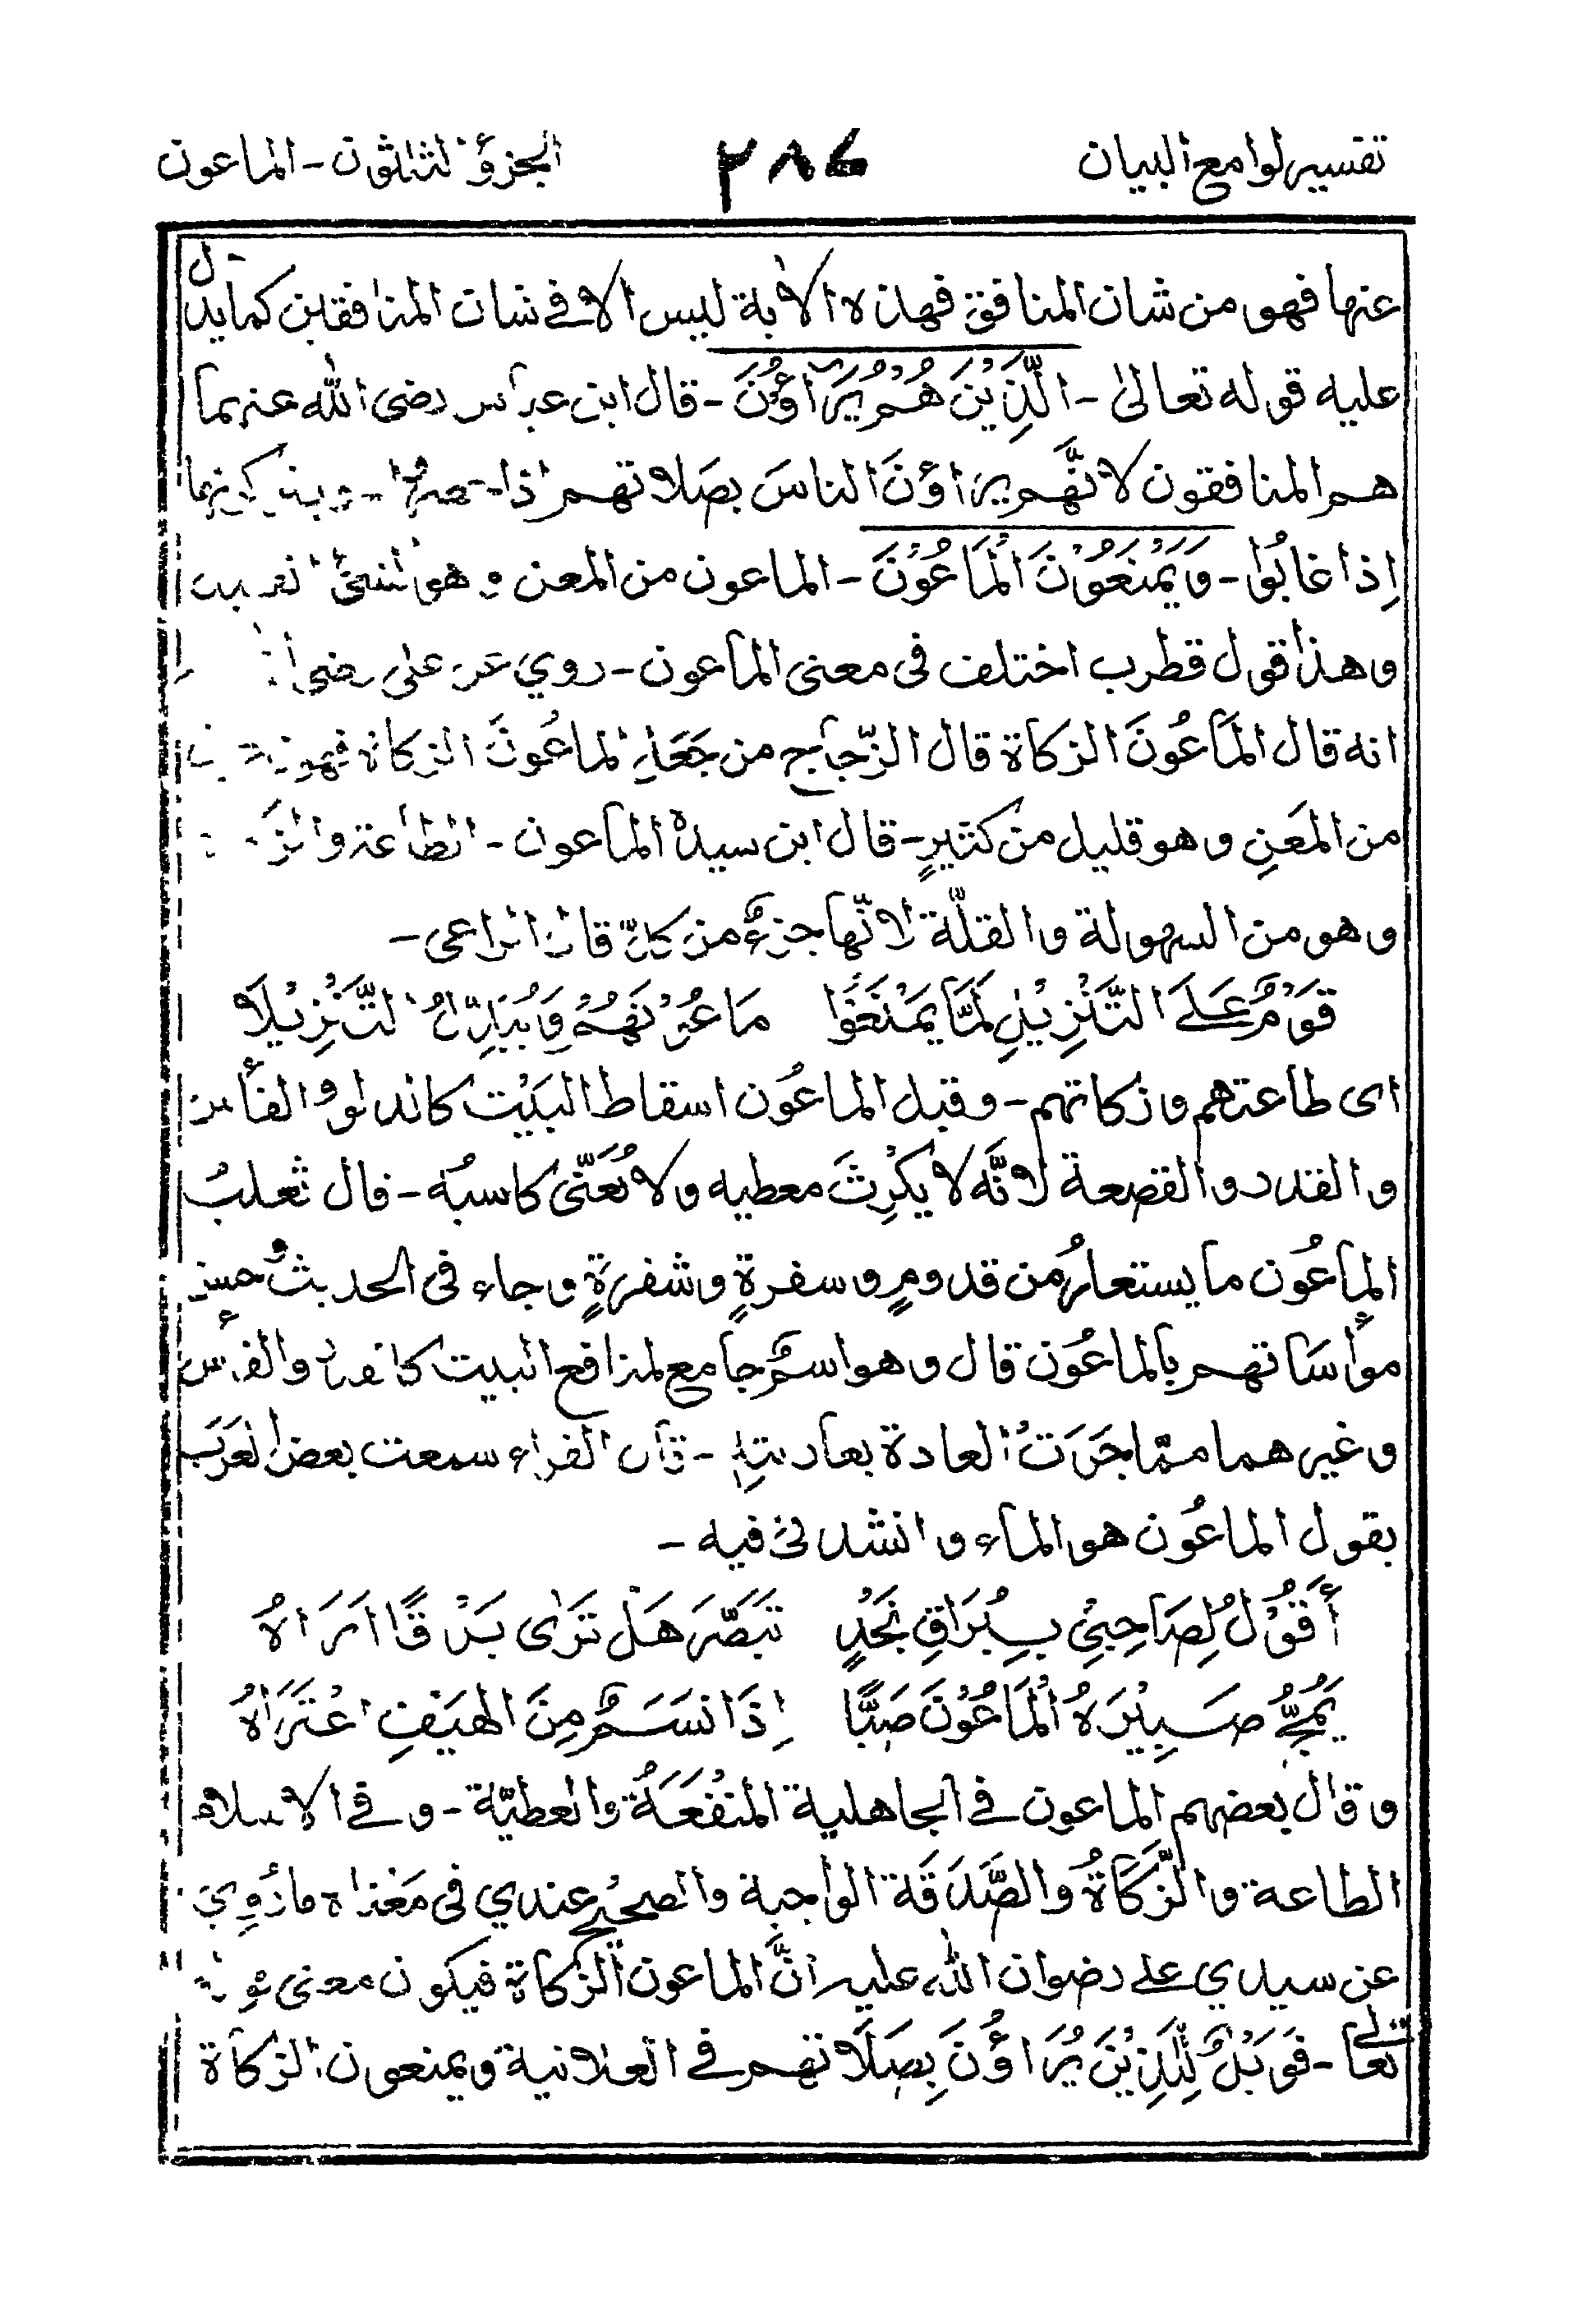 تفسير لوامع البيان ٢٨٦ الجزؤ الثلثون - الماعون
عنها فهو من شان المنافق فهذه الاٰية ليس الا في شان المنافقين كما يدل
عليه قوله تعالىٰ - الَّذِيْنَ هُمْ يُرَآؤُنَ - قال ابن عباس رضى الله عنهما
هم المنافقون لانَّهم يراؤنَ الناسَ بصَلاتهم اذا
اِذا غابُوا - وَيَمْنَعُوْنَ الْمَاعُوْنَ - الماعون من المعن وهو الشئ
وهذا قول قطرب اختلف فى معنى الماعون - روي عن على رضى
انه قال المَاعُونَ الزكاة قال الزّجاج من جَعَل الماعُونَ الزكاة فهو
من المَعَنِ وهو قليل من كثيرٍ - قال ابن سيدهْ الماعون - الطاعة والزكاة
وهو من السهولة والقلّة لانّها جزءٌ من كلّ قال الراعى -
قَوْمٌ عَلَے التَّنْزِيْلِ لَمَّا يَمْنَعُوْا مَاعُوْنَهُمْ وَيُبَدِّلُوا التَّنْزِيْلَا
اى طاعتهم وزكاتهم - وقيل الماعُون اسقاط البَيْت كالدلو والفأس
والقدر والقصعة لانَّه لا يَكْرِثَ معطيه ولا يُعَنّى كاسبُه - قال ثعلبُ
الماعُون ما يستعارُ من قدومٍ وسفرةٍ وشفرةٍ وجاء فى الحديثُ حسن
موأسَاتهم بالماعُون قال وهو اسمٌ جامع لمنافع البيت كالقدر والفأس
وغيرهما ممّا جَرَتُ العادة بعاريته - قال الفراء سمعت بعض العَرَب
يقول الماعُون هو الماء وانشدنى فيه -
أَقُوْلُ لِصَاحِبِيْ بِبُرَاقِ نَجْدٍ تَبَصَّرَ هَلْ تَرٰى بَرْقًا اَرَاهُ
يَمُجُّ صَبِيْرَهُ الْمَاعُوْنَ صَبًّا اِذَا نَسَمٌ مِنَ الهَيَفِ اعْتَرَاهُ
وقال بعضهم الماعون في الجاهلية المنْفَعَةُ والعطيّة - وفے الاسلام
الطاعة والزَّكَاةُ والصَّدَقَة الواجبة والصحيح عندي فى مَعْناه ما رُوِيَ
عن سيدي علے رضوان الله عليه انَّ الماعون الزكاة فيكون معنى قوله
تعالے - فَوَيْلٌ لِّلَّذِيْنَ يُرَاؤُنَ بِصَلَاتهم فے العلانية ويمنعون الزكاة